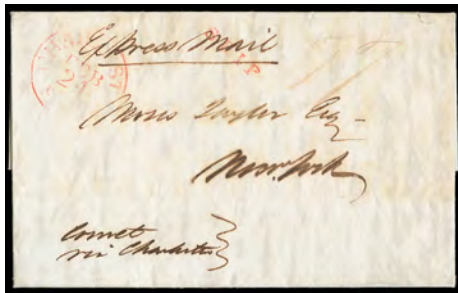 Express Mail
Moses Taylor Esq
New York
Comet
via Charleston